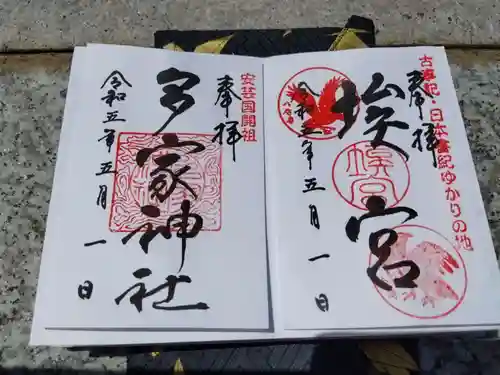 古事記・日本書紀ゆかりの地
奉拝
埃宮
八咫烏
埃宮
令和五年五月一日
安芸国開祖
奉拝
多家神社
令和五年五月一日